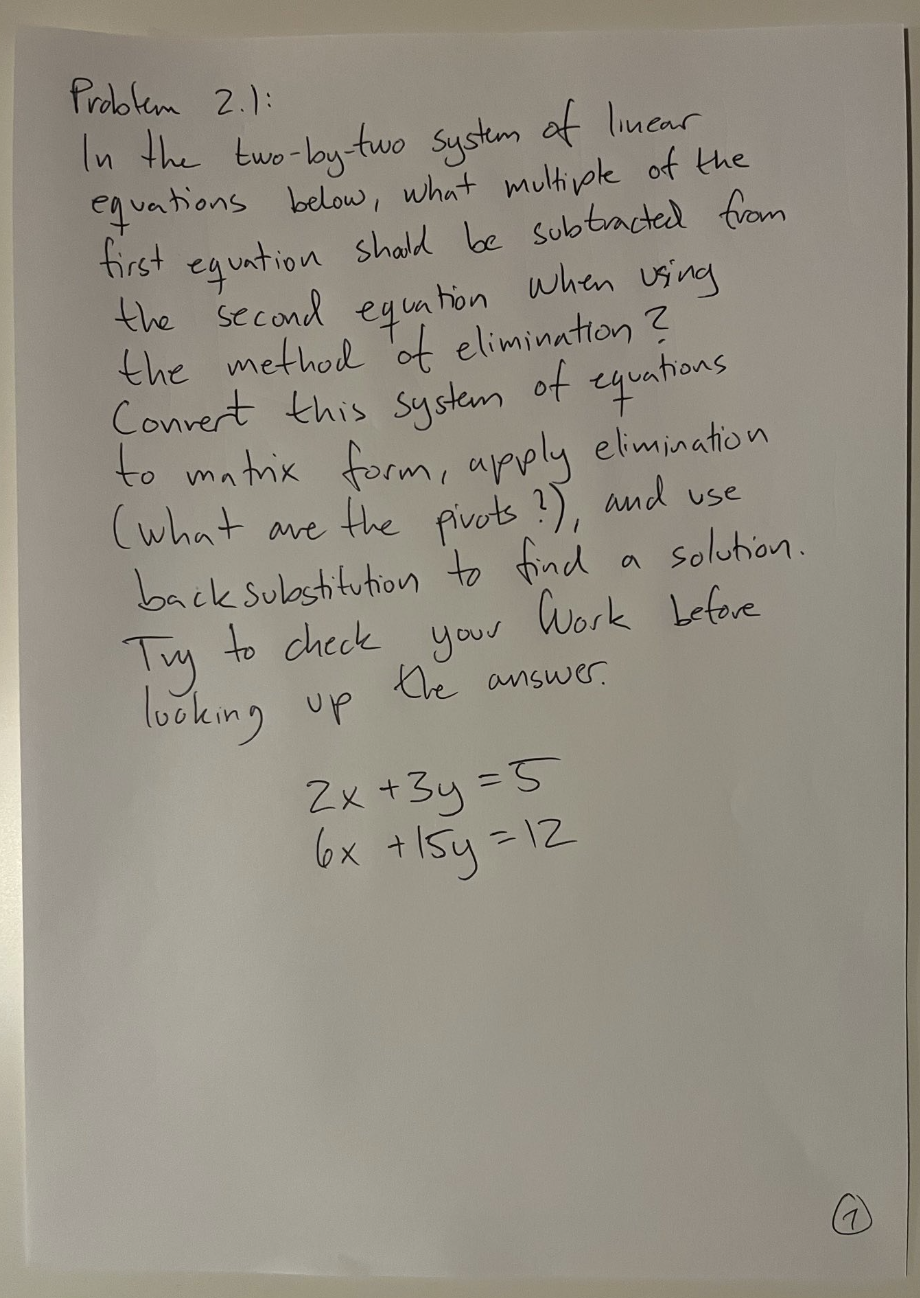 Problem 2.1:
In the two-by-two system of linear
equations below, what multiple of the
first equation should be subtracted from
the second equation when using
the method of elimination?
Convert this system of equations
to matrix form, apply elimination
(what are the pivots?), and use
back substitution to find a solution.
Try to check your work before
looking up the answer.
2x + 3y = 5
6x + 15y = 12
1